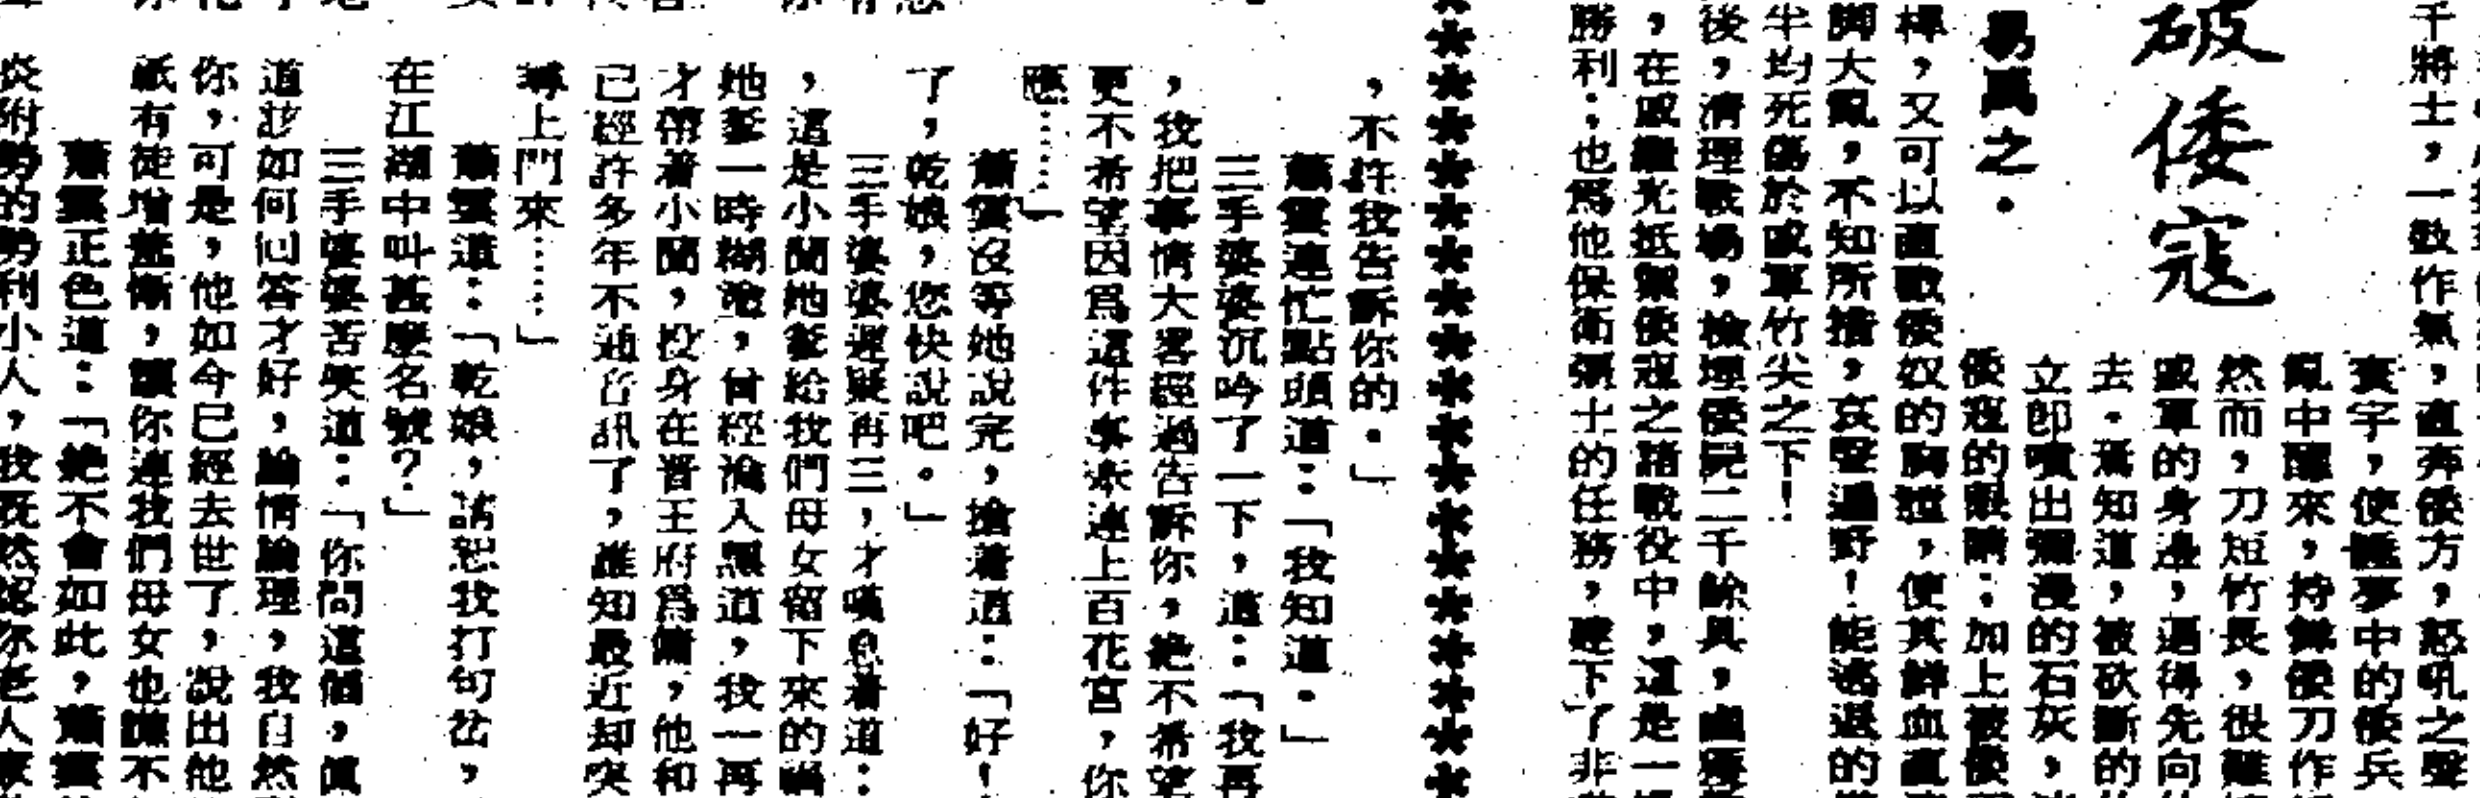 千將士，一鼓作氣，直奔倭方，怒吼之聲
寰宇，使睡夢中的倭兵
亂中醒來，持鮮倭刀作
然而，刀短竹長，很難
戚軍的身邊，遇得先向
去。焉知道，被砍斷的
立即噴出瀰漫的石灰，
倭寇的眼睛；加上被倭
破倭寇
易為之。
樺，又可以直戳倭奴的胸膛，使其鮮血直
脚大亂，不知所措，哀聲遍野！能逃退的
半均死傷於戚軍竹尖之下！
後，清理戰場，檢埋倭屍二千餘具，幽
，在戚繼光抵禦倭寇之諸戰役中，這是一
勝利；也爲他保衛疆土的任務，建下了非
，不許我告訴你的。」
蕭雲連忙點頭道：「我知道。」
三手婆婆沉吟了一下，道：「我再
，我把事情大畧經過告訴你，絶不希望
更不希望因爲這件事牽連上百花宮，你
應……」
蕭雲沒等她說完，搶着道：「好！
了，乾娘，您快說吧。」
三手婆婆遲疑再三，才嘆息着道：
，這是小蘭她爹給我們母女留下來的禍
她爹一時糊塗，曾經淪入黑道，我一再
才帶着小蘭，投身在晋王府爲傭，他和
已經許多年不通音訊了，誰知最近却突
尋上門來……」
蕭雲道：「乾娘，請恕我打句岔，
在江湖中叫甚麽名號？」
三手婆婆苦笑道：「你問這個，眞
道該如何回答才好，論情論理，我自然
你，可是，他如今已經去世了，說出他
祇有徒增羞慚，讓你連我們母女也讌不
蕭雲正色道：「絶不會如此，蕭雲
炎附勢的勢利小人，我既然認你老人家